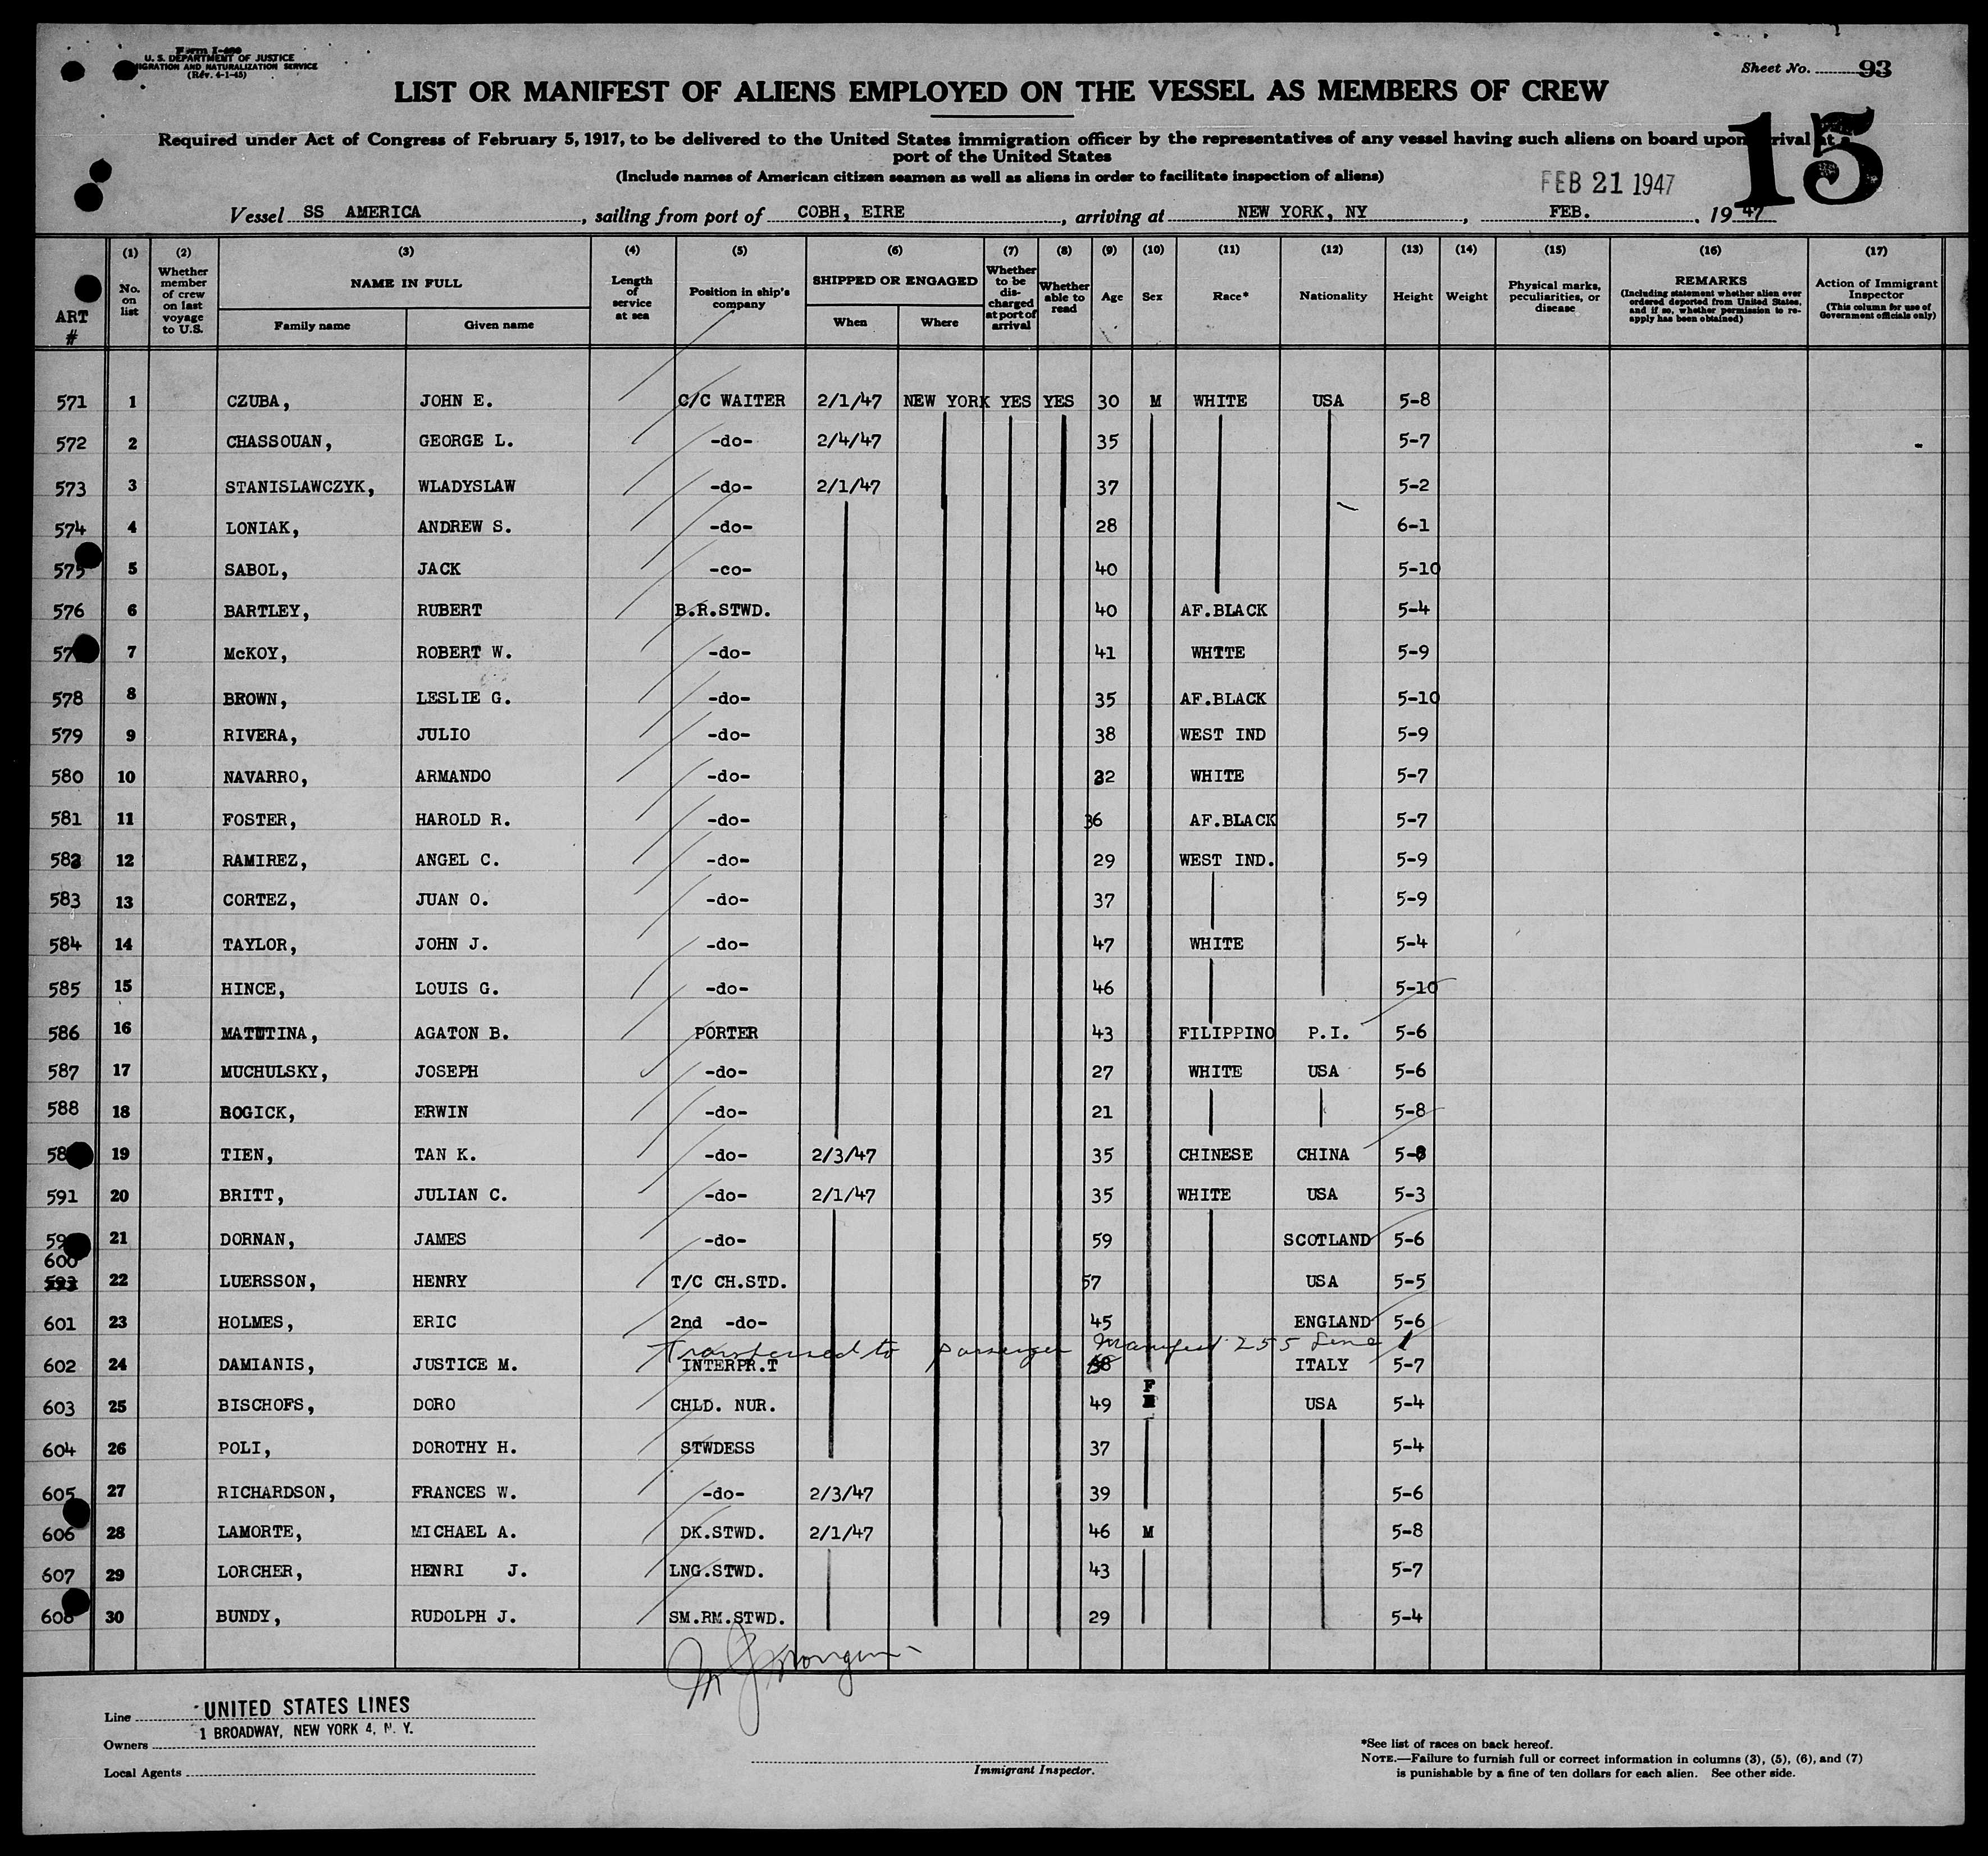 Form I-480
U. S. DEPARTMENT OF JUSTICE
IGRATION AND NATURALIZATION SERVICE
(Rev. 4-1-45)
Sheet No. 93
LIST OR MANIFEST OF ALIENS EMPLOYED ON THE VESSEL AS MEMBERS OF CREW
15
Required under Act of Congress of February 5, 1917, to be delivered to the United States immigration officer by the representatives of any vessel having such aliens on board upon arrival at
port of the United States
(Include names of American citizen seamen as well as aliens in order to facilitate inspection of aliens)
FEB 21 1947
Vessel SS AMERICA, sailing from port of COBH, EIRE, arriving at NEW YORK, NY, FEB., 1947
ART # (1) No. on list (2) Whether member of crew on last voyage to U.S. (3) NAME IN FULL Family name Given name (4) Length of service at sea (5) Position in ship's company (6) SHIPPED OR ENGAGED When Where (7) Whether to be discharged at port of arrival (8) Whether able to read (9) Age (10) Sex (11) Race* (12) Nationality (13) Height (14) Weight (15) Physical marks, peculiarities, or disease (16) REMARKS (Including statement whether alien ever ordered deported from United States, and if so, whether permission to re-apply has been obtained) (17) Action of Immigrant Inspector (This column for use of Government officials only)
571 1 CZUBA, JOHN E. C/C WAITER 2/1/47 NEW YORK YES YES 30 M WHITE USA 5-8
572 2 CHASSOUAN, GEORGE L. -do- 2/4/47 35 5-7
573 3 STANISLAWCZYK, WLADYSLAW -do- 2/1/47 37 5-2
574 4 LONIAK, ANDREW S. -do- 28 6-1
575 5 SABOL, JACK -co- 40 5-10
576 6 BARTLEY, RUBERT B.R.STWD. 40 AF.BLACK 5-4
57 7 McKOY, ROBERT W. -do- 41 WHTTE 5-9
578 8 BROWN, LESLIE G. -do- 35 AF.BLACK 5-10
579 9 RIVERA, JULIO -do- 38 WEST IND 5-9
580 10 NAVARRO, ARMANDO -do- 32 WHITE 5-7
581 11 FOSTER, HAROLD R. -do- 36 AF.BLACK 5-7
582 12 RAMIREZ, ANGEL C. -do- 29 WEST IND. 5-9
583 13 CORTEZ, JUAN O. -do- 37 5-9
584 14 TAYLOR, JOHN J. -do- 47 WHITE 5-4
585 15 HINCE, LOUIS G. -do- 46 5-10
586 16 MATUTINA, AGATON B. PORTER 43 FILIPPINO P.I. 5-6
587 17 MUCHULSKY, JOSEPH -do- 27 WHITE USA 5-6
588 18 ROGICK, ERWIN -do- 21 5-8
58 19 TIEN, TAN K. -do- 2/3/47 35 CHINESE CHINA 5-8
591 20 BRITT, JULIAN C. -do- 2/1/47 35 WHITE USA 5-3
59 21 DORNAN, JAMES -do- 59 SCOTLAND 5-6
600
593 22 LUERSSON, HENRY T/C CH.STD. 57 USA 5-5
601 23 HOLMES, ERIC 2nd -do- 45 ENGLAND 5-6
Transferred to passenger Manifest 255 Line 1
602 24 DAMIANIS, JUSTICE M. INTERPR.T 58 ITALY 5-7
603 25 BISCHOFS, DORO CHLD. NUR. 49 F USA 5-4
604 26 POLI, DOROTHY H. STWDESS 37 5-4
605 27 RICHARDSON, FRANCES W. -do- 2/3/47 39 5-6
606 28 LAMORTE, MICHAEL A. DK.STWD. 2/1/47 46 M 5-8
607 29 LORCHER, HENRI J. LNG.STWD. 43 5-7
608 30 BUNDY, RUDOLPH J. SM.RM.STWD. 29 5-4
Line UNITED STATES LINES
1 BROADWAY, NEW YORK 4, N. Y.
Owners
Local Agents
Immigrant Inspector.
*See list of races on back hereof.
NOTE.—Failure to furnish full or correct information in columns (3), (5), (6), and (7)
is punishable by a fine of ten dollars for each alien. See other side.